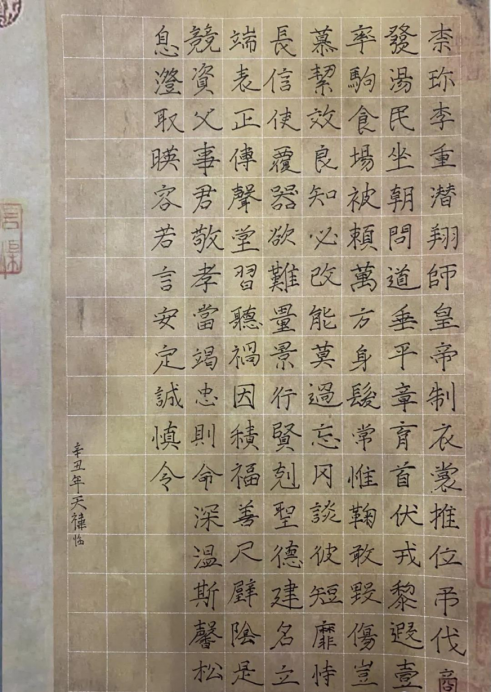 柰珎李重潜翔師皇帝制衣裳推位吊伐商
發湯民坐朝問道垂平章育首伏戎黎遐壹
率駒食場被頼萬方身髮常惟鞠敢毀傷豈
慕絜效良知必改能莫過忘罔談彼短靡恃
長信使覆器欲難量景行賢剋聖德建名立
端表正傳聲堂習聽禍因積福善尺璧陰是
競資父事君敬孝當竭忠則命深温斯馨松
息澄取暎容若言安定誠慎令
辛丑年天禕临